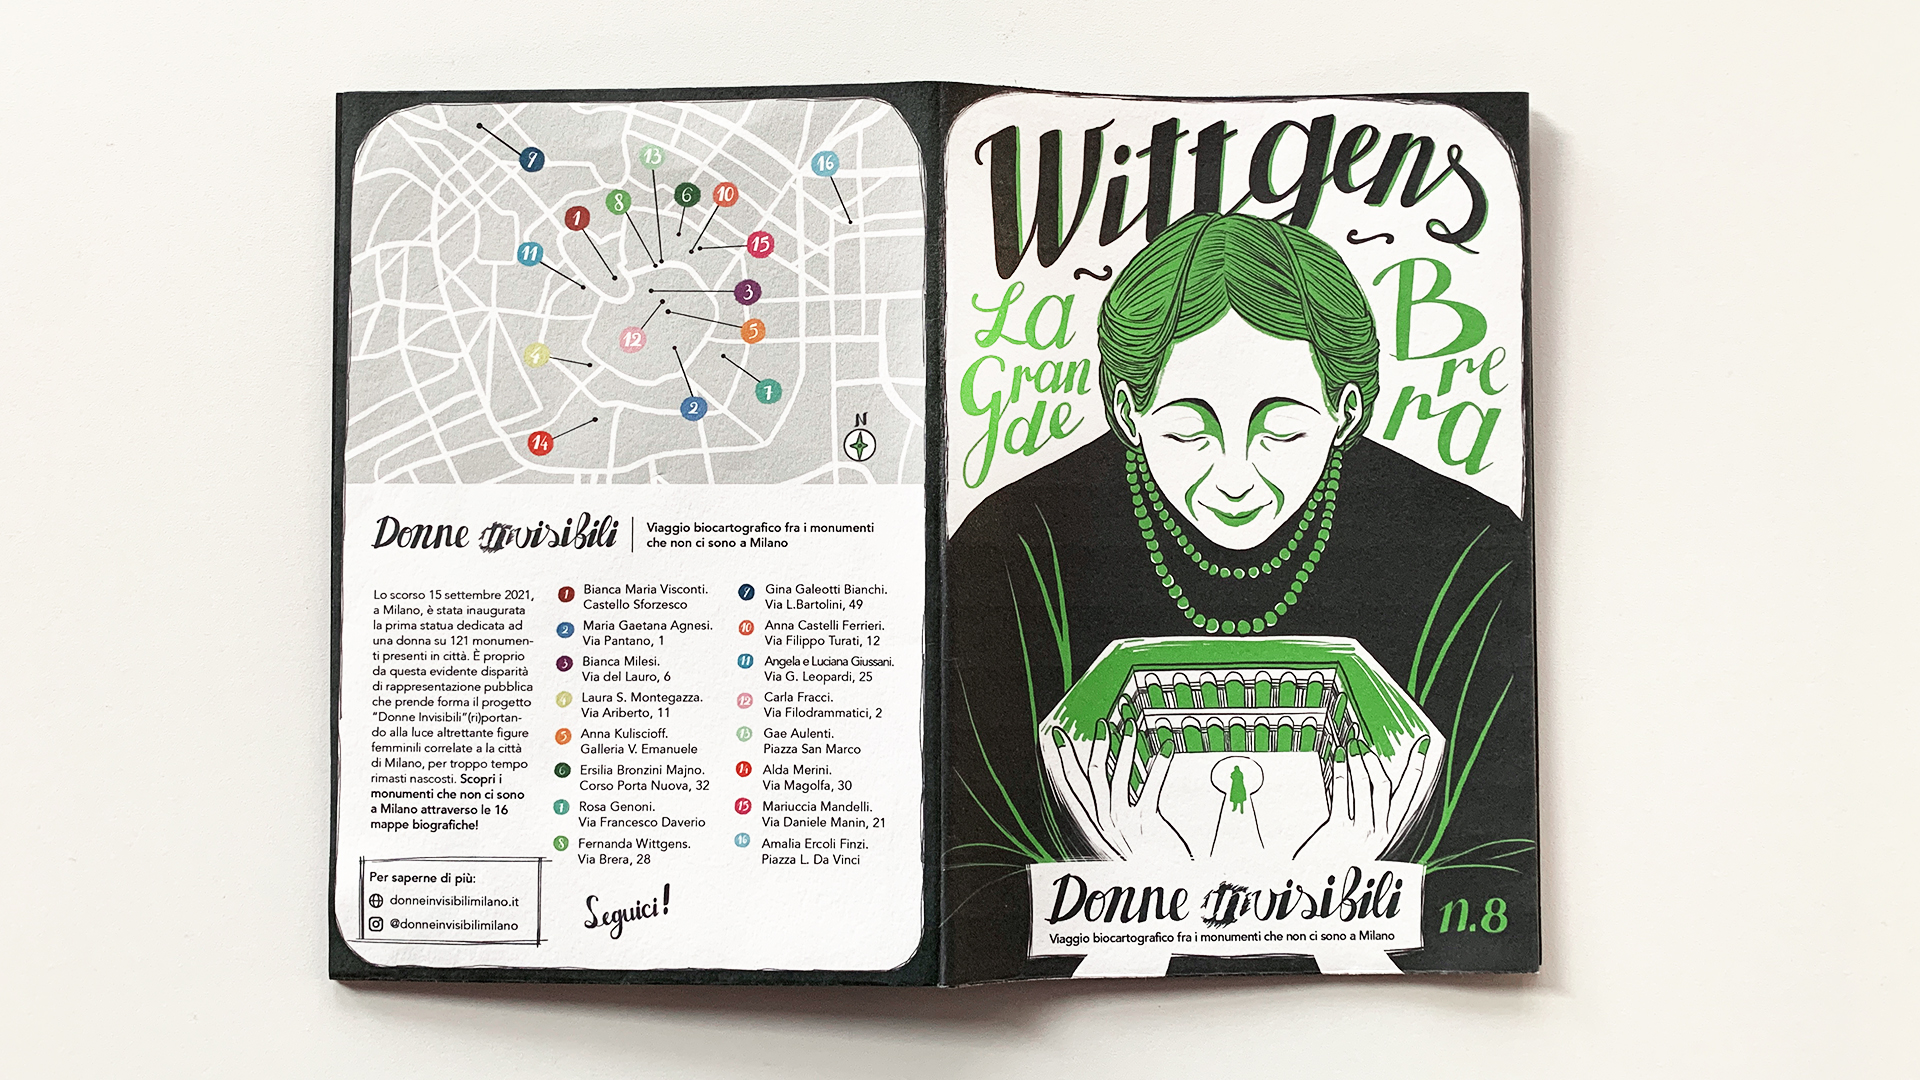 9
13
16
8
6
10
1
11
15
3
12
5
4
7
2
14
N
Donne Invisibili
Viaggio biocartografico fra i monumenti
che non ci sono a Milano
Lo scorso 15 settembre 2021,
a Milano, è stata inaugurata
la prima statua dedicata ad
una donna su 121 monumen-
ti presenti in città. È proprio
da questa evidente disparità
di rappresentazione pubblica
che prende forma il progetto
“Donne Invisibili”(ri)portan-
do alla luce altrettante figure
femminili correlate a la città
di Milano, per troppo tempo
rimasti nascosti. Scopri i
monumenti che non ci sono
a Milano attraverso le 16
mappe biografiche!
1 Bianca Maria Visconti.
Castello Sforzesco
2 Maria Gaetana Agnesi.
Via Pantano, 1
3 Bianca Milesi.
Via del Lauro, 6
4 Laura S. Montegazza.
Via Ariberto, 11
5 Anna Kuliscioff.
Galleria V. Emanuele
6 Ersilia Bronzini Majno.
Corso Porta Nuova, 32
7 Rosa Genoni.
Via Francesco Daverio
8 Fernanda Wittgens.
Via Brera, 28
9 Gina Galeotti Bianchi.
Via L.Bartolini, 49
10 Anna Castelli Ferrieri.
Via Filippo Turati, 12
11 Angela e Luciana Giussani.
Via G. Leopardi, 25
12 Carla Fracci.
Via Filodrammatici, 2
13 Gae Aulenti.
Piazza San Marco
14 Alda Merini.
Via Magolfa, 30
15 Mariuccia Mandelli.
Via Daniele Manin, 21
16 Amalia Ercoli Finzi.
Piazza L. Da Vinci
Per saperne di più:
donneinvisibilimilano.it
@donneinvisibilimilano
Seguici!
Wittgens
La
Gran
de
B
re
ra
Donne Invisibili
Viaggio biocartografico fra i monumenti che non ci sono a Milano
n.8